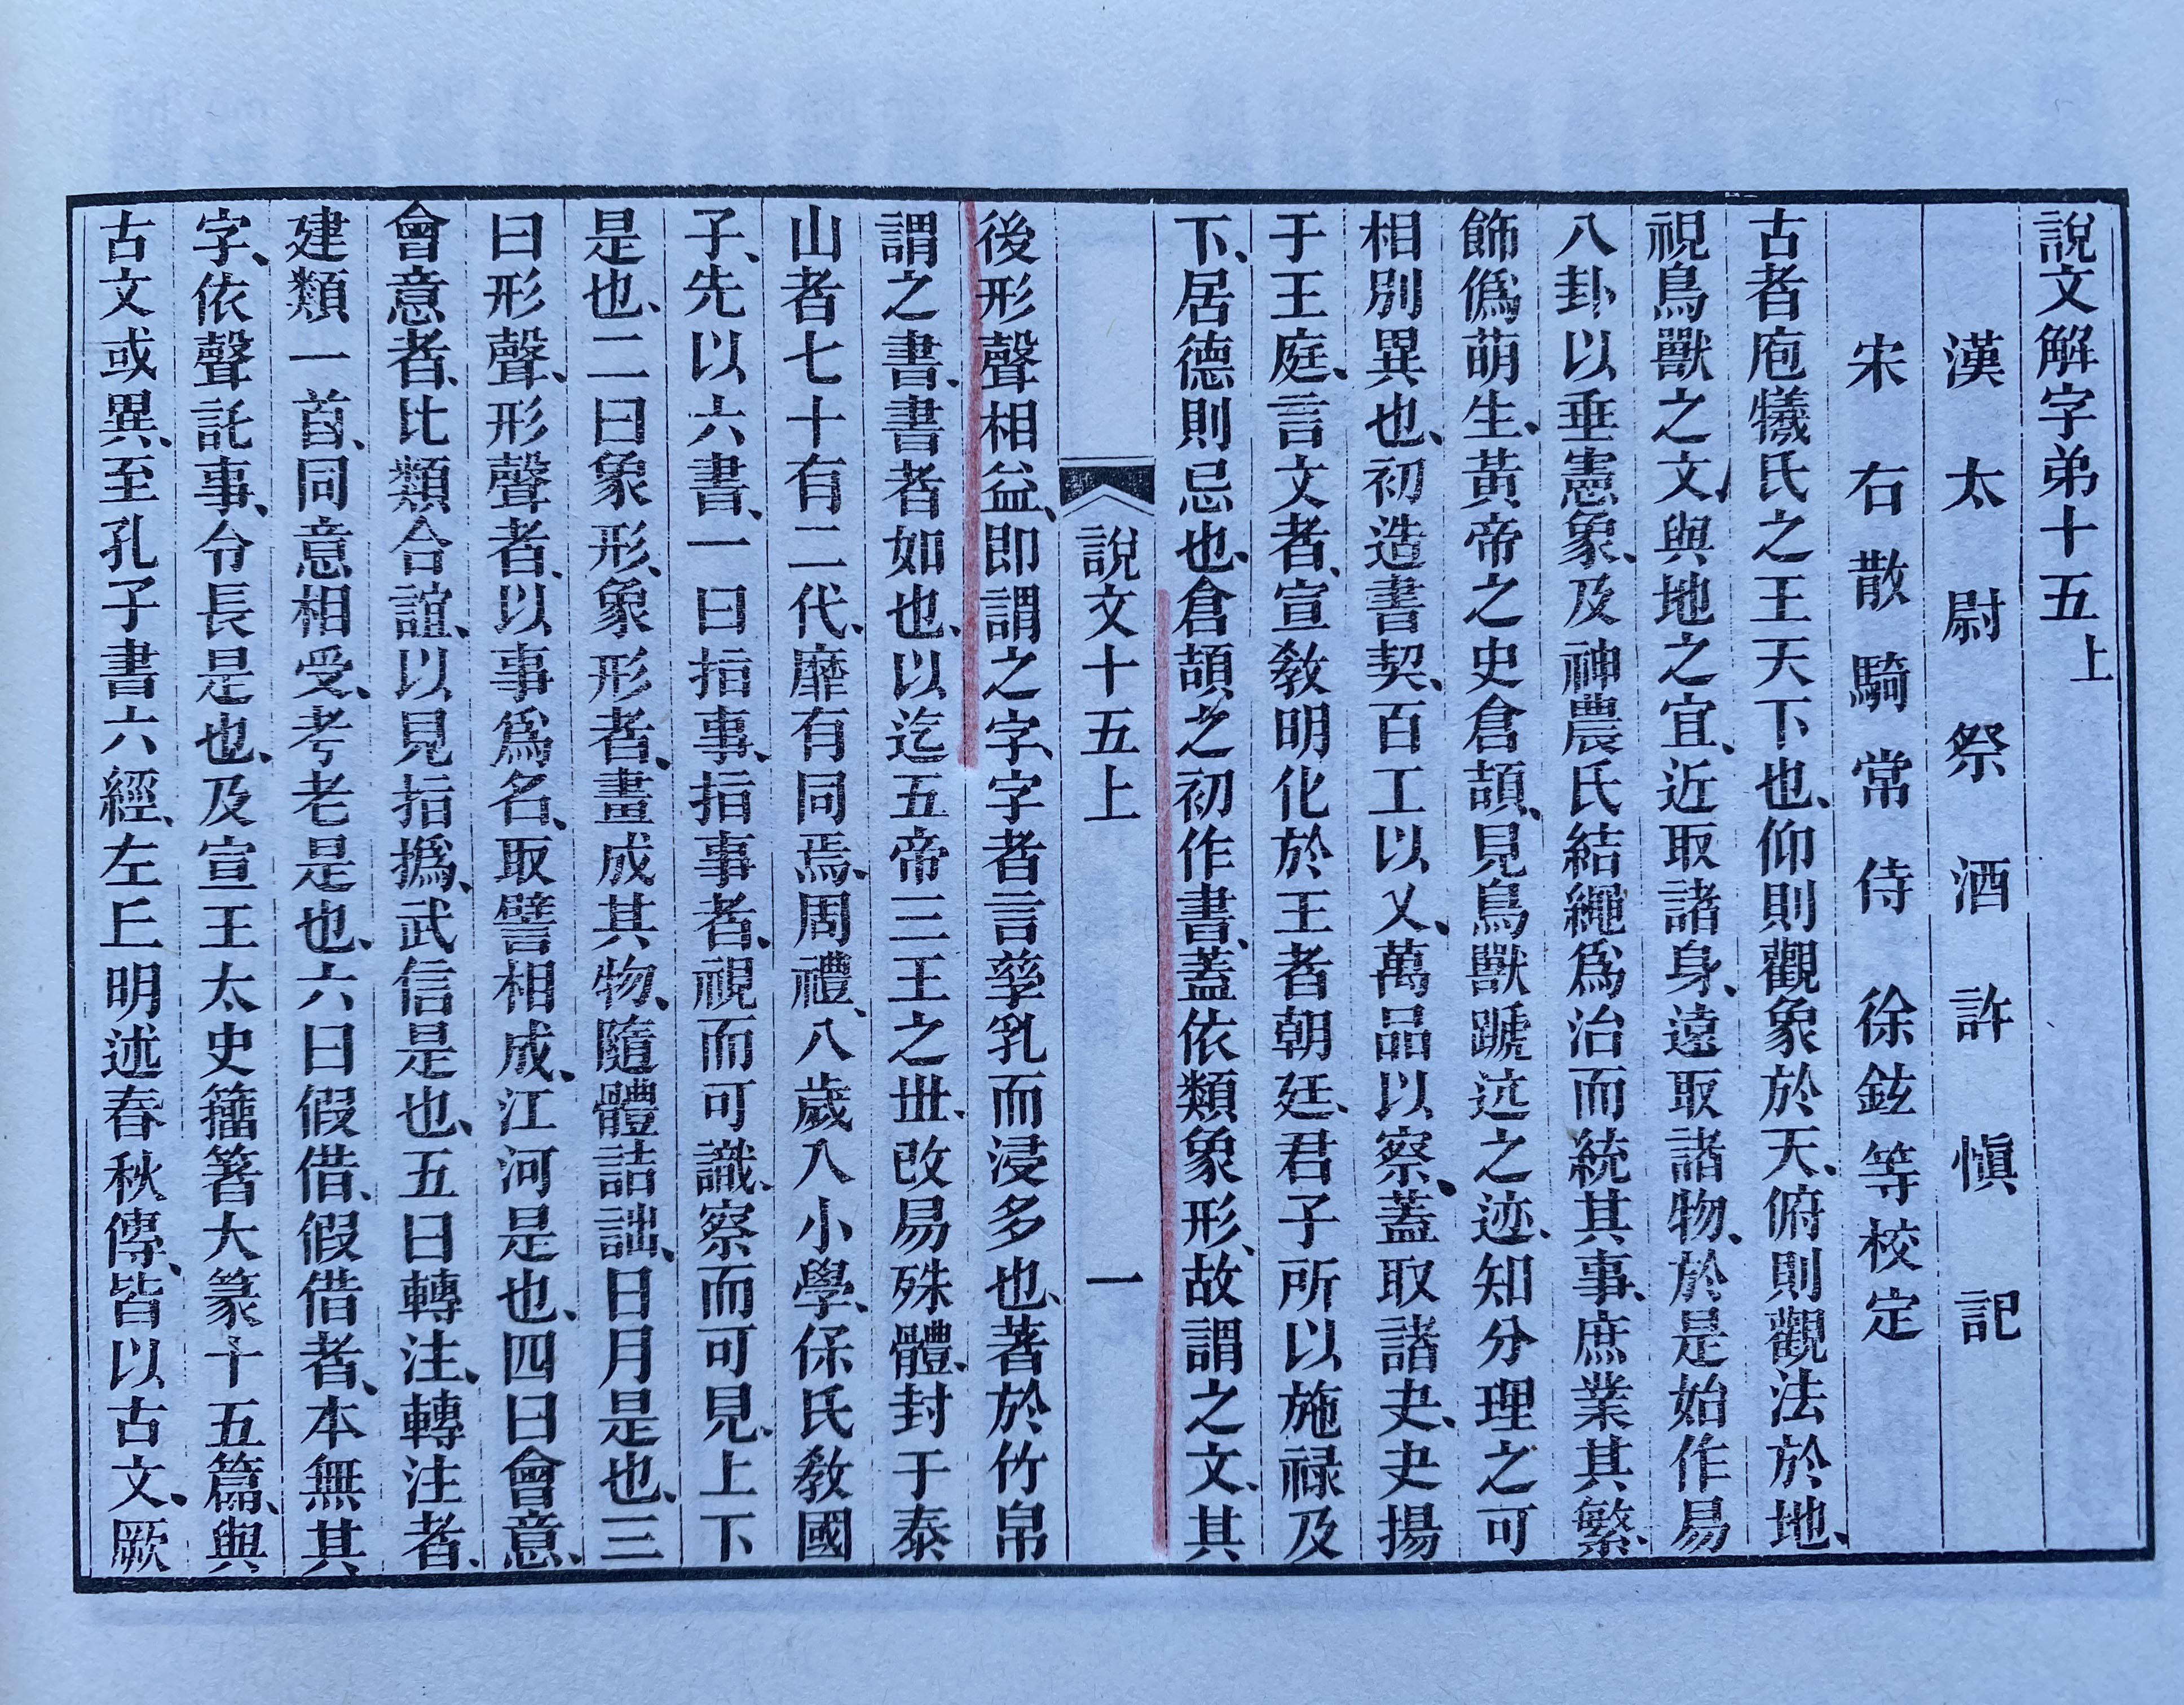 說文解字弟十五上
漢太尉祭酒許慎記
宋右散騎常侍徐鉉等校定
古者庖犧氏之王天下也、仰則觀象於天、俯則觀法於地、
視鳥獸之文、與地之宜、近取諸身、遠取諸物、於是始作易
八卦以垂憲象、及神農氏結繩爲治而統其事、庶業其繁、
飾僞萌生、黃帝之史倉頡、見鳥獸蹏迒之迹、知分理之可
相別異也、初造書契、百工以乂、萬品以察、蓋取諸夬、夬揚
于王庭、言文者、宣敎明化於王者朝廷、君子所以施祿及
下、居德則忌也、倉頡之初作書、蓋依類象形、故謂之文、其
說文十五上 一
後形聲相益、卽謂之字、字者言孳乳而浸多也、著於竹帛
謂之書、書者如也、以迄五帝三王之世、改易殊體、封于泰
山者七十有二代、靡有同焉、周禮、八歲入小學、保氏敎國
子、先以六書、一曰指事、指事者、視而可識、察而可見、上下
是也、二曰象形、象形者、畫成其物、隨體詰詘、日月是也、三
曰形聲、形聲者、以事爲名、取譬相成、江河是也、四曰會意、
會意者、比類合誼、以見指撝、武信是也、五曰轉注、轉注者、
建類一首、同意相受、考老是也、六曰假借、假借者、本無其
字、依聲託事、令長是也、及宣王太史籒著大篆十五篇、與
古文或異、至孔子書六經、左丘明述春秋傳、皆以古文、厥